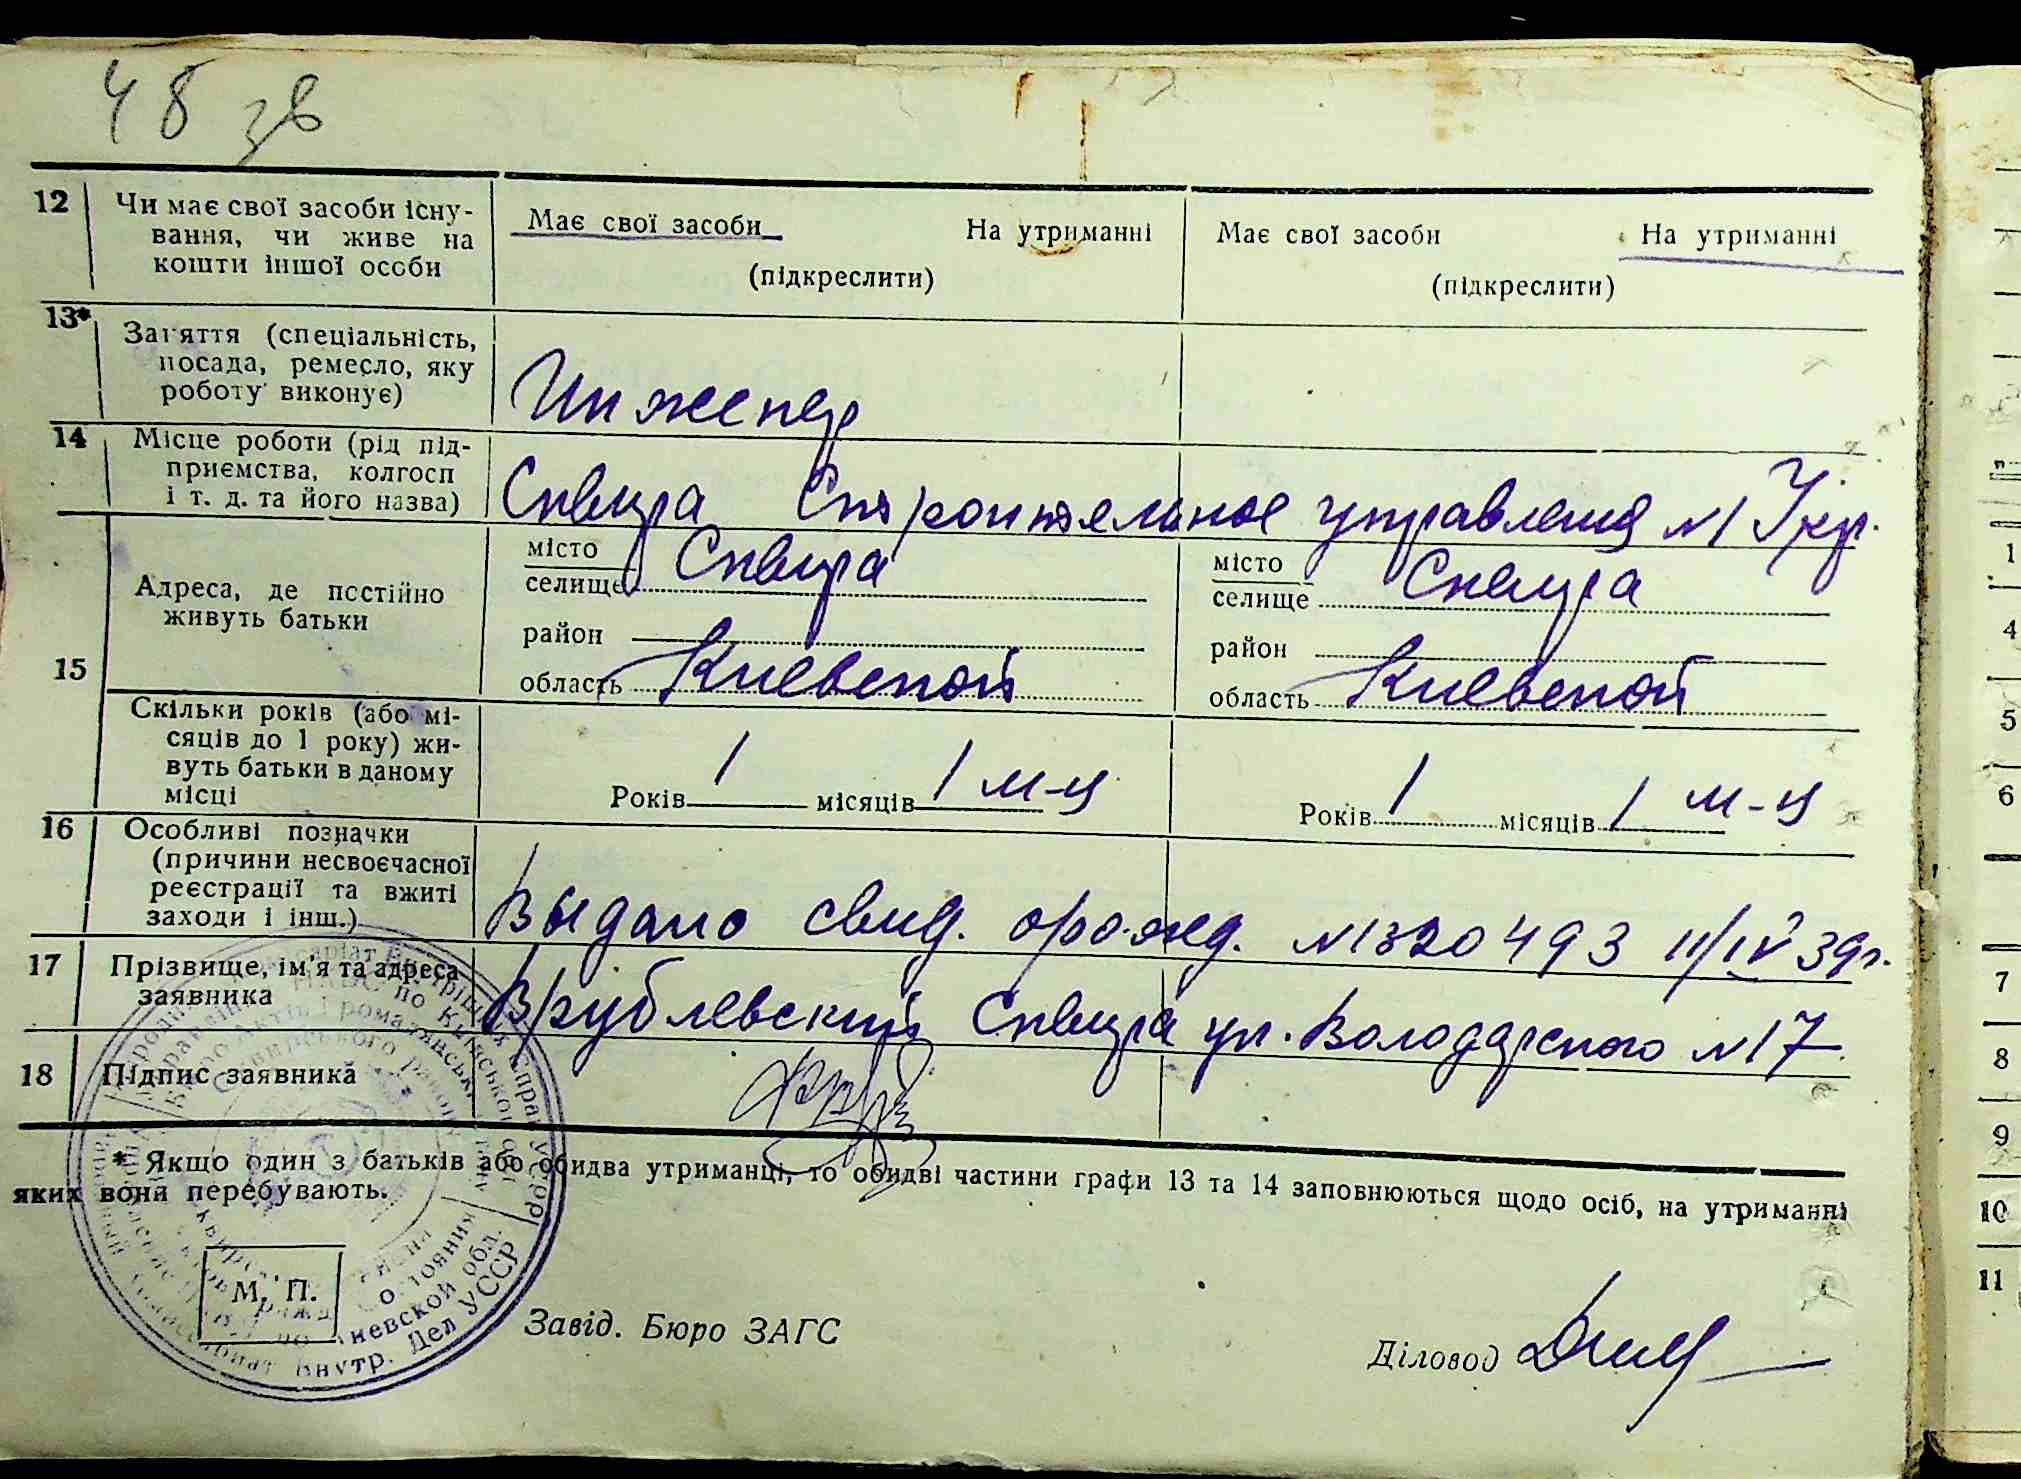 48 зв
12 Чи має свої засоби існу-
вання, чи живе на
кошти іншої особи
Має свої засоби На утриманні
(підкреслити)
Має свої засоби На утриманні
(підкреслити)
13* Заняття (спеціальність,
посада, ремесло, яку
роботу виконує)
Инженер
14 Місце роботи (рід під-
приємства, колгосп
і т. д. та його назва)
Сквира Строительное управления №1 Укр.
15 Адреса, де постійно
живуть батьки
місто
селище Сквира
район
область Киевской
місто
селище Сквира
район
область Киевской
Скільки років (або мі-
сяців до 1 року) жи-
вуть батьки в даному
місці
Років 1 місяців 1 м-ц
Років 1 місяців 1 м-ц
16 Особливі позначки
(причини несвоєчасної
реєстрації та вжиті
заходи і інш.)
Выдано свид. о рожд. №1320493 11/IV 39г.
17 Прізвище, ім'я та адреса
заявника
Врублевский Сквира ул. Володарского №17
18 Підпис заявника
* Якщо один з батьків або обидва утриманці, то обидві частини графи 13 та 14 заповнюються щодо осіб, на утриманні
яких вони перебувають.
М. П.
Завід. Бюро ЗАГС
Діловод
Внутр. Дел УССР